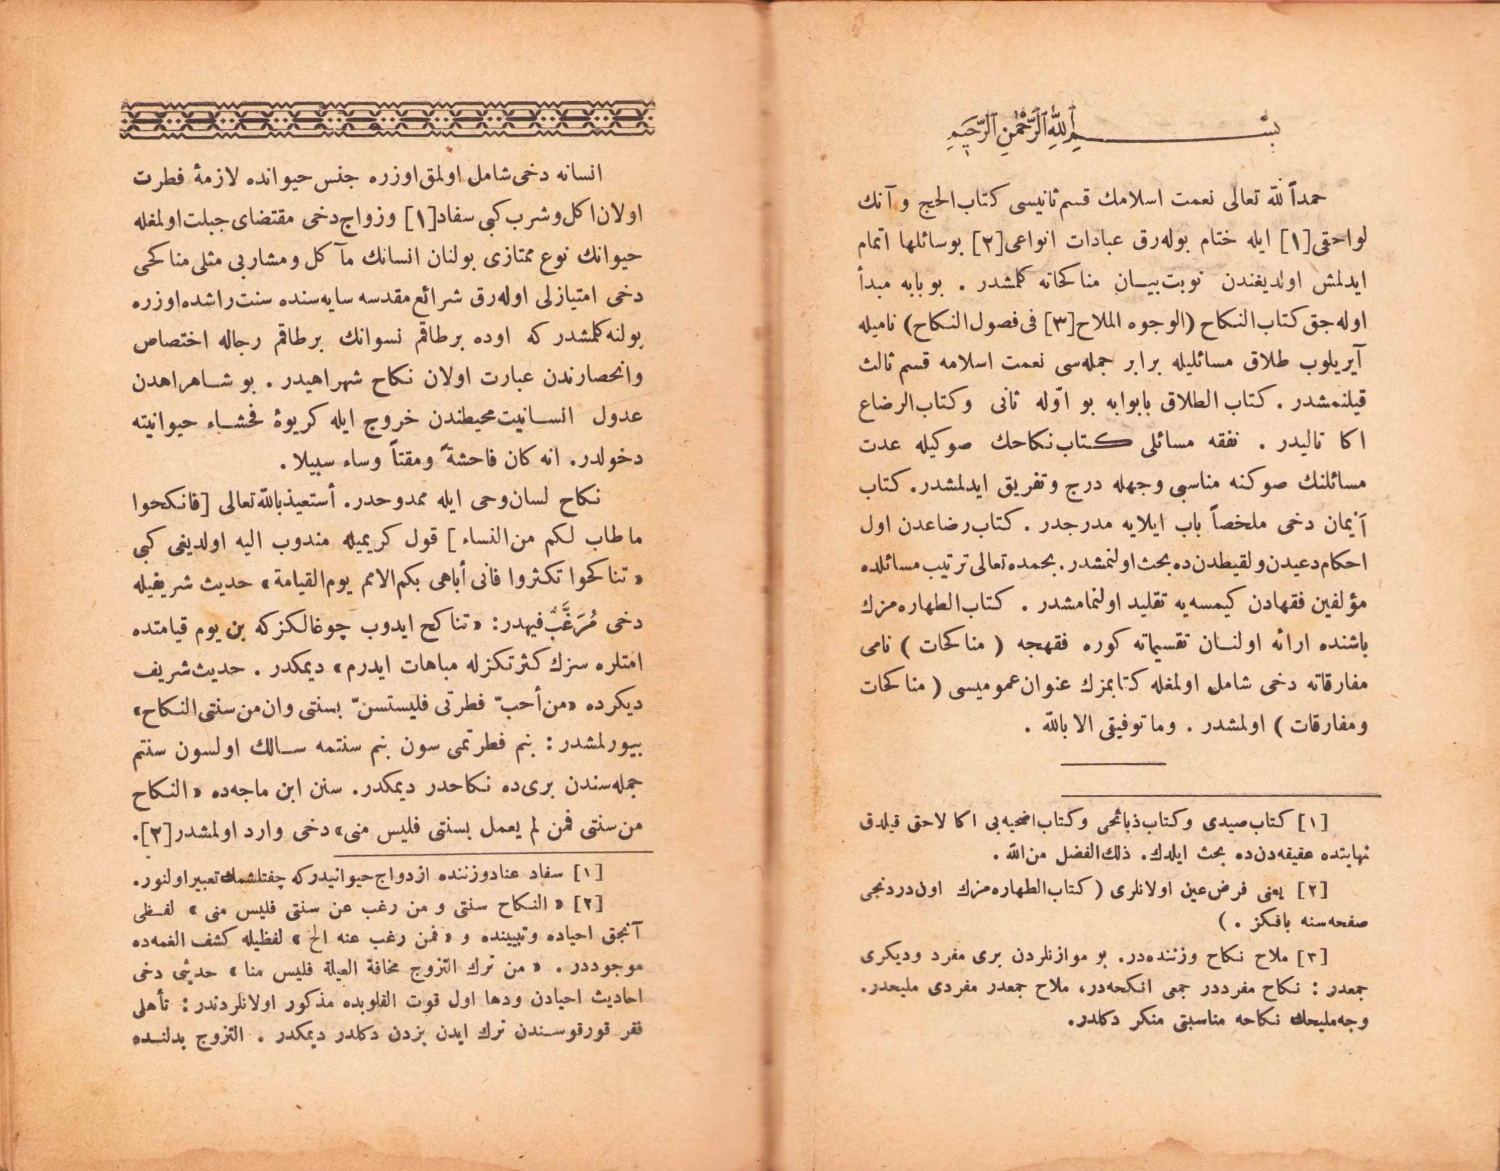 بسم الله الرحمن الرحيم
حمداً لله تعالى نعمت اسلامك قسم ثانيسى كتاب‌الحج و آنك
لواحقى[١] ايله ختام بوله‌رق عبادات انواعى[٢] بوسائلها اتمام
ايدلمش اولديغندن نوبت‌بيان مناكحاته كلمشدر . بو بابه مبدأ
اوله‌جق كتاب‌النكاح (الوجوه الملاح[٣] فى‌فصول‌النكاح) ناميله
آيريلوب طلاق مسائليله برابر جمله‌سى نعمت اسلامه قسم ثالث
قيلنمشدر . كتاب الطلاق بابوابه بو اوّله ثانى وكتاب‌الرضاع
اكا تاليدر . نفقه مسائلى كتاب‌نكاحك صوكيله عدت
مسائلنك صوكنه مناسبى وجهله درج و تفريق ايدلمشدر. كتاب
أيمان دخى ملخصاً باب ايلايه مدرجدر . كتاب‌رضاعدن اول
احكام‌دعيدن‌ولقيطدن‌ده‌بحث‌اولنمشدر. بحمده‌تعالى‌ترتيب‌مسائلده
مؤلفين فقهادن كيمسه‌يه تقليد اولنمامشدر . كتاب‌الطهاره‌مزك
باشنده ارائه اولنان تقسيماته كوره فقهجه ( مناكحات ) نامى
مفارقاته دخى شامل اولمغله كتابمزك عنوان‌عموميسى ( مناكحات
ومفارقات ) اولمشدر . وما توفيقى الا بالله .
[١] كتاب‌صيدى وكتاب‌ذبائحى وكتاب‌اضحيه‌يى اكا لاحق قيلدق
نهايتده عقيقه‌دن‌ده بحث ايلدك. ذلك‌الفضل من‌الله .
[٢] يعنى فرض‌عين اولانلرى ( كتاب‌الطهاره‌مزك اون‌دردنجى
صفحه‌سنه باقكز . )
[٣] ملاح نكاح وزننده‌در. بو موازنلردن برى مفرد وديكرى
جمعدر : نكاح مفرددر جمعى انكحه‌در، ملاح جمعدر مفردى مليحدر.
وجه‌مليحك نكاحه مناسبتى منكر دكلدر.
انسانه دخى شامل اولمق اوزره جنس حيوانده لازمهٔ فطرت
اولان‌اكل‌وشرب‌كبى سفاد[١] وزواج‌دخى مقتضاى جبلت‌اولمغله
حيوانك نوع ممتازى بولنان انسانك مآكل ومشاربى مثلى‌مناكحى
دخى امتيازلى اوله‌رق شرائع‌مقدسه سايه‌سنده سنت‌راشده‌اوزره
بولنه‌كلمشدر كه اوده برطاقم نسوانك برطاقم رجاله اختصاص
وانحصارندن عبارت اولان نكاح شهراهيدر . بو شاهراهدن
عدول انسانيت‌محيطندن خروج ايله كريوهٔ فحشاء حيوانيته
دخولدر. انه كان فاحشةً ومقتاً وساء سبيلا .
نكاح لسان‌وحى ايله ممدوحدر. أستعيذبالله‌تعالى [فانكحوا
ماطاب لكم من‌النساء] قول كريميله مندوب اليه اولديغى كبى
« تناكحوا تكثروا فانى أباهى بكم‌الامم يوم‌القيامة » حديث شريفيله
دخى مُرَغَّبٌ‌فيهدر: « تناكح ايدوب چوغالكزكه بن يوم قيامتده
امتلره سزك كثرتكزله مباهات ايدرم » ديمكدر . حديث‌شريف
ديكرده « من‌أحبّ فطرتى فليستسنّ بسنتى وان‌من‌سنتى‌النكاح»
بيورلمشدر : بنم فطرتمى سون بنم سنتمه سالك اولسون سنتم
جمله‌سندن برى‌ده نكاحدر ديمكدر. سنن ابن ماجه‌ده « النكاح
من‌سنتى فمن لم يعمل بسنتى فليس منى» دخى وارد اولمشدر[٢].
[١] سفاد عنادوزننده ازدواج‌حيوانيدركه چفتلشمك‌تعبيراولنور.
[٢] « النكاح سنتى و من رغب عن سنتى فليس منى » لفظى
آنجق احياده وتبيينده و « فمن رغب عنه الخ » لفظيله كشف الغمه‌ده
موجوددر . « من ترك التزوج مخافة العيلة فليس منا » حديثى دخى
احاديث احيادن ودها اول قوت القلوبده مذكور اولانلردندر : تأهلى
فقر قورقوسندن ترك ايدن بزدن دكلدر ديمكدر . التزوج بدلنده